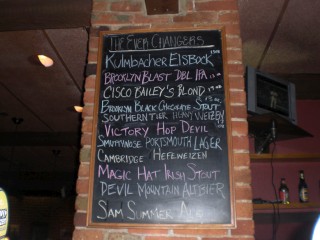 The Ever Changers
Kulmbacher Eisbock
Brooklyn Blast Dbl IPA
Cisco Bailey's Blond
Brooklyn Black Chocolate Stout
Southern Tier Hoppe Weizen
Victory Hop Devil
Smuttynose Portsmouth Lager
Cambridge Hefeweizen
Magic Hat Irish Stout
Devil Mountain Altbier
Sam Summer Ale